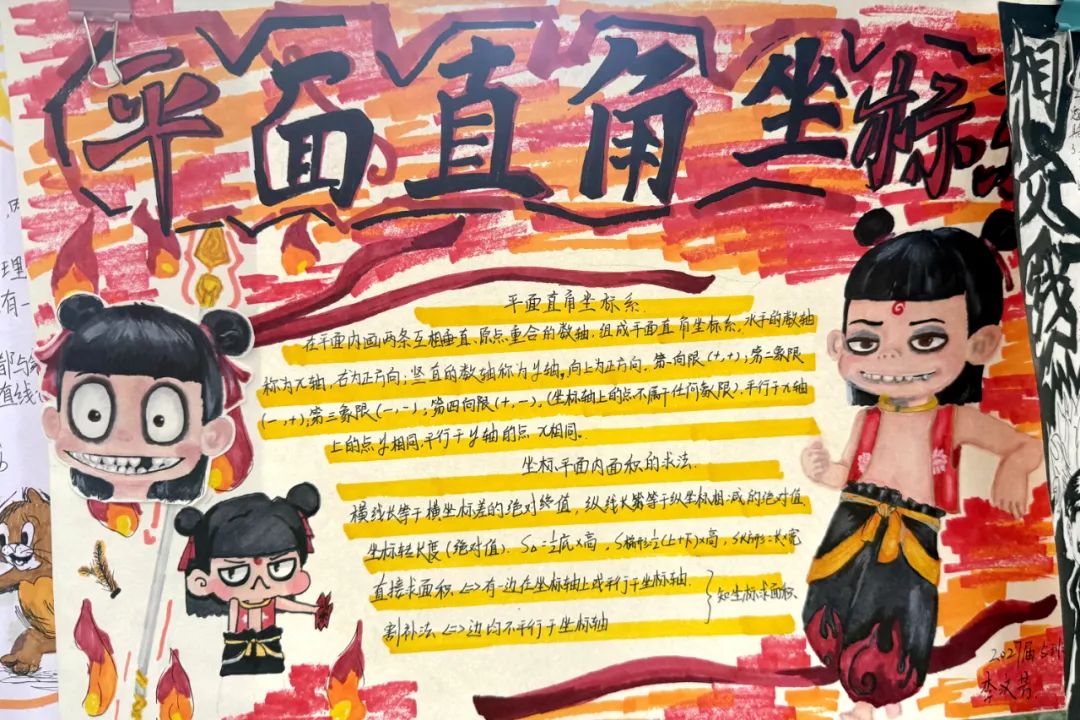 平面直角坐标
相交线
平面直角坐标系
在平面内画两条互相垂直、原点重合的数轴,组成平面直角坐标系,水平的数轴
称为x轴,右为正方向;竖直的数轴称为y轴,向上为正方向,第一向限(+,+);第二象限
(-,+);第三象限(-,-);第四向限(+,-),(坐标轴上的点不属于任何象限).平行于x轴
上的点y相同,平行于y轴的点x相同。
坐标平面内面积的求法.
横线长等于横坐标差的绝对值,纵线长等于纵坐标相减的绝对值
坐标转长度(绝对值). S△=½底×高,S梯形½(上+下)×高,S长方形=长×宽
直接求面积<=>有一边在坐标轴上或平行于坐标轴.
知坐标求面积、
割补法<=>边均不平行于坐标轴
2021届